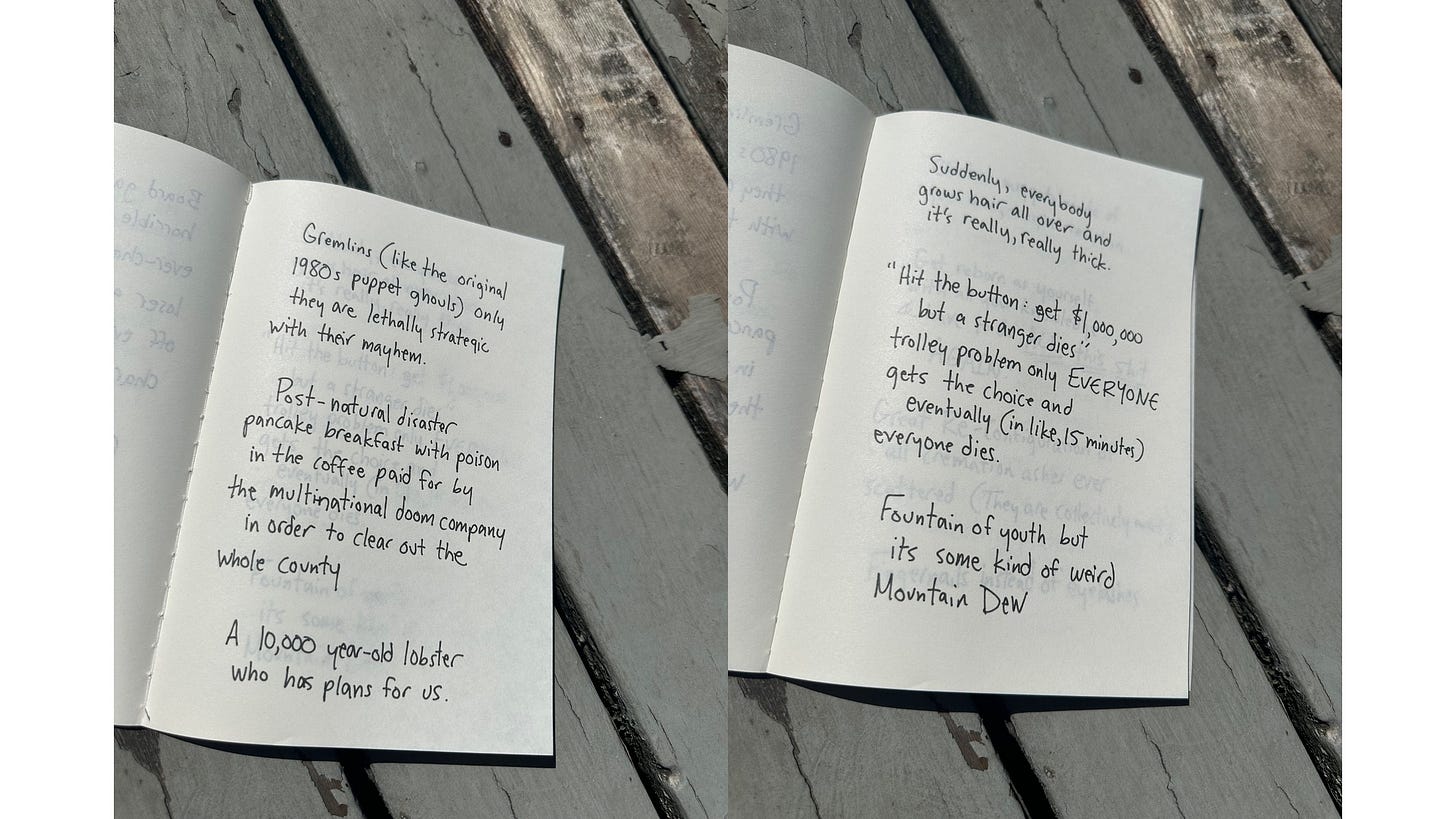 Gremlins (like the original
1980s puppet ghouls) only
they are lethally strategic
with their mayhem.
Post-natural disaster
pancake breakfast with poison
in the coffee paid for by
the multinational doom company
in order to clear out the
whole county
A 10,000 year-old lobster
who has plans for us.
Suddenly, everybody
grows hair all over and
it's really, really thick.
"Hit the button: get $1,000,000
but a stranger dies"
trolley problem only EVERYONE
gets the choice and
eventually (in like, 15 minutes)
everyone dies.
Fountain of youth but
its some kind of weird
Mountain Dew